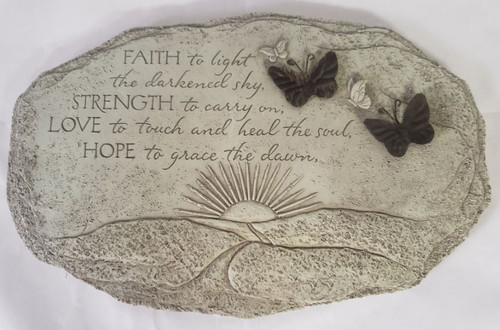 FAITH to light
the darkened sky,
STRENGTH to carry on,
LOVE to touch and heal the soul,
HOPE to grace the dawn,